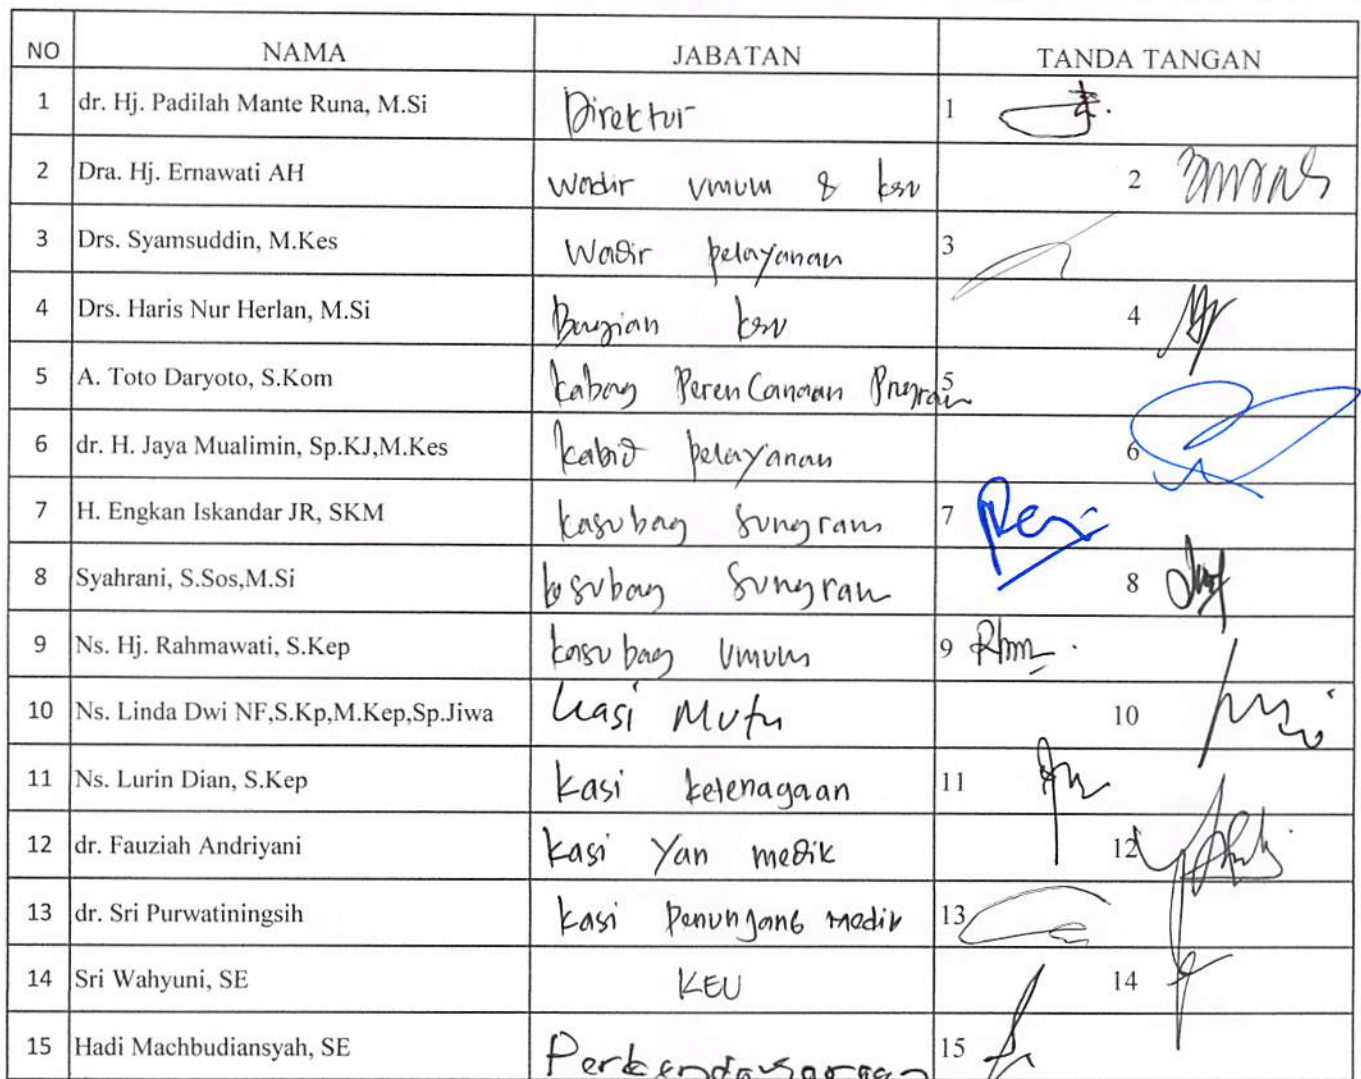 NO NAMA JABATAN TANDA TANGAN
1 dr. Hj. Padilah Mante Runa, M.Si Direktur 1
2 Dra. Hj. Ernawati AH Wadir Umum & keu 2
3 Drs. Syamsuddin, M.Kes Wadir pelayanan 3
4 Drs. Haris Nur Herlan, M.Si Bagian keu 4
5 A. Toto Daryoto, S.Kom kabag Perencanaan Program 5
6 dr. H. Jaya Mualimin, Sp.KJ,M.Kes kabid pelayanan 6
7 H. Engkan Iskandar JR, SKM kasubag sungram 7
8 Syahrani, S.Sos,M.Si kasubag Sungram 8
9 Ns. Hj. Rahmawati, S.Kep kasubag Umum 9
10 Ns. Linda Dwi NF,S.Kp,M.Kep,Sp.Jiwa kasi Mutu 10
11 Ns. Lurin Dian, S.Kep kasi ketenagaan 11
12 dr. Fauziah Andriyani kasi Yan medik 12
13 dr. Sri Purwatiningsih kasi Penunjang medik 13
14 Sri Wahyuni, SE KEU 14
15 Hadi Machbudiansyah, SE 15